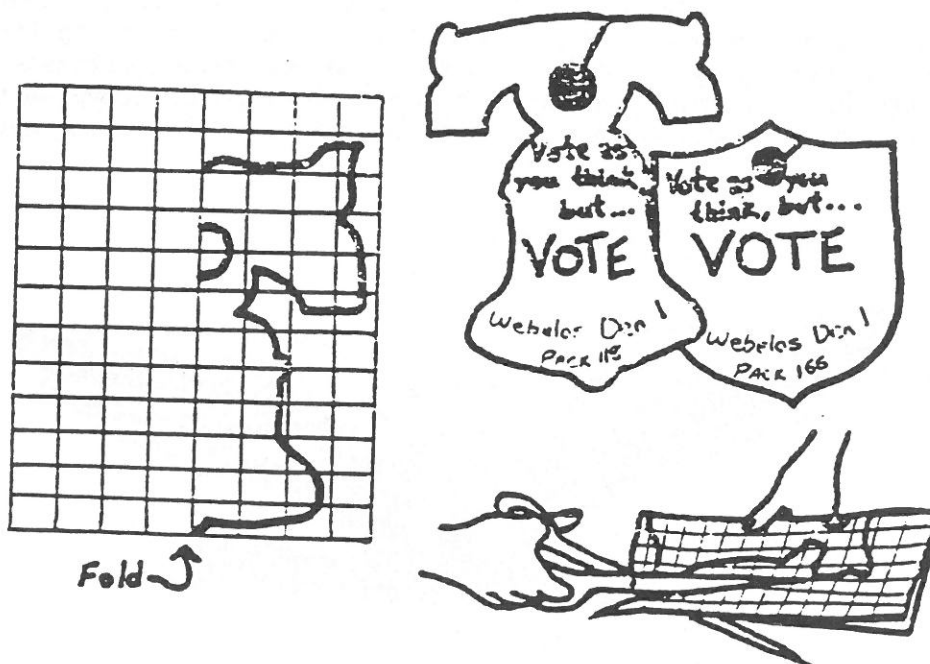 Vote as
you think
but...
VOTE
Webelos Den 1
PACK 118
Vote as you
think, but...
VOTE
Webelos Den 1
PACK 166
Fold